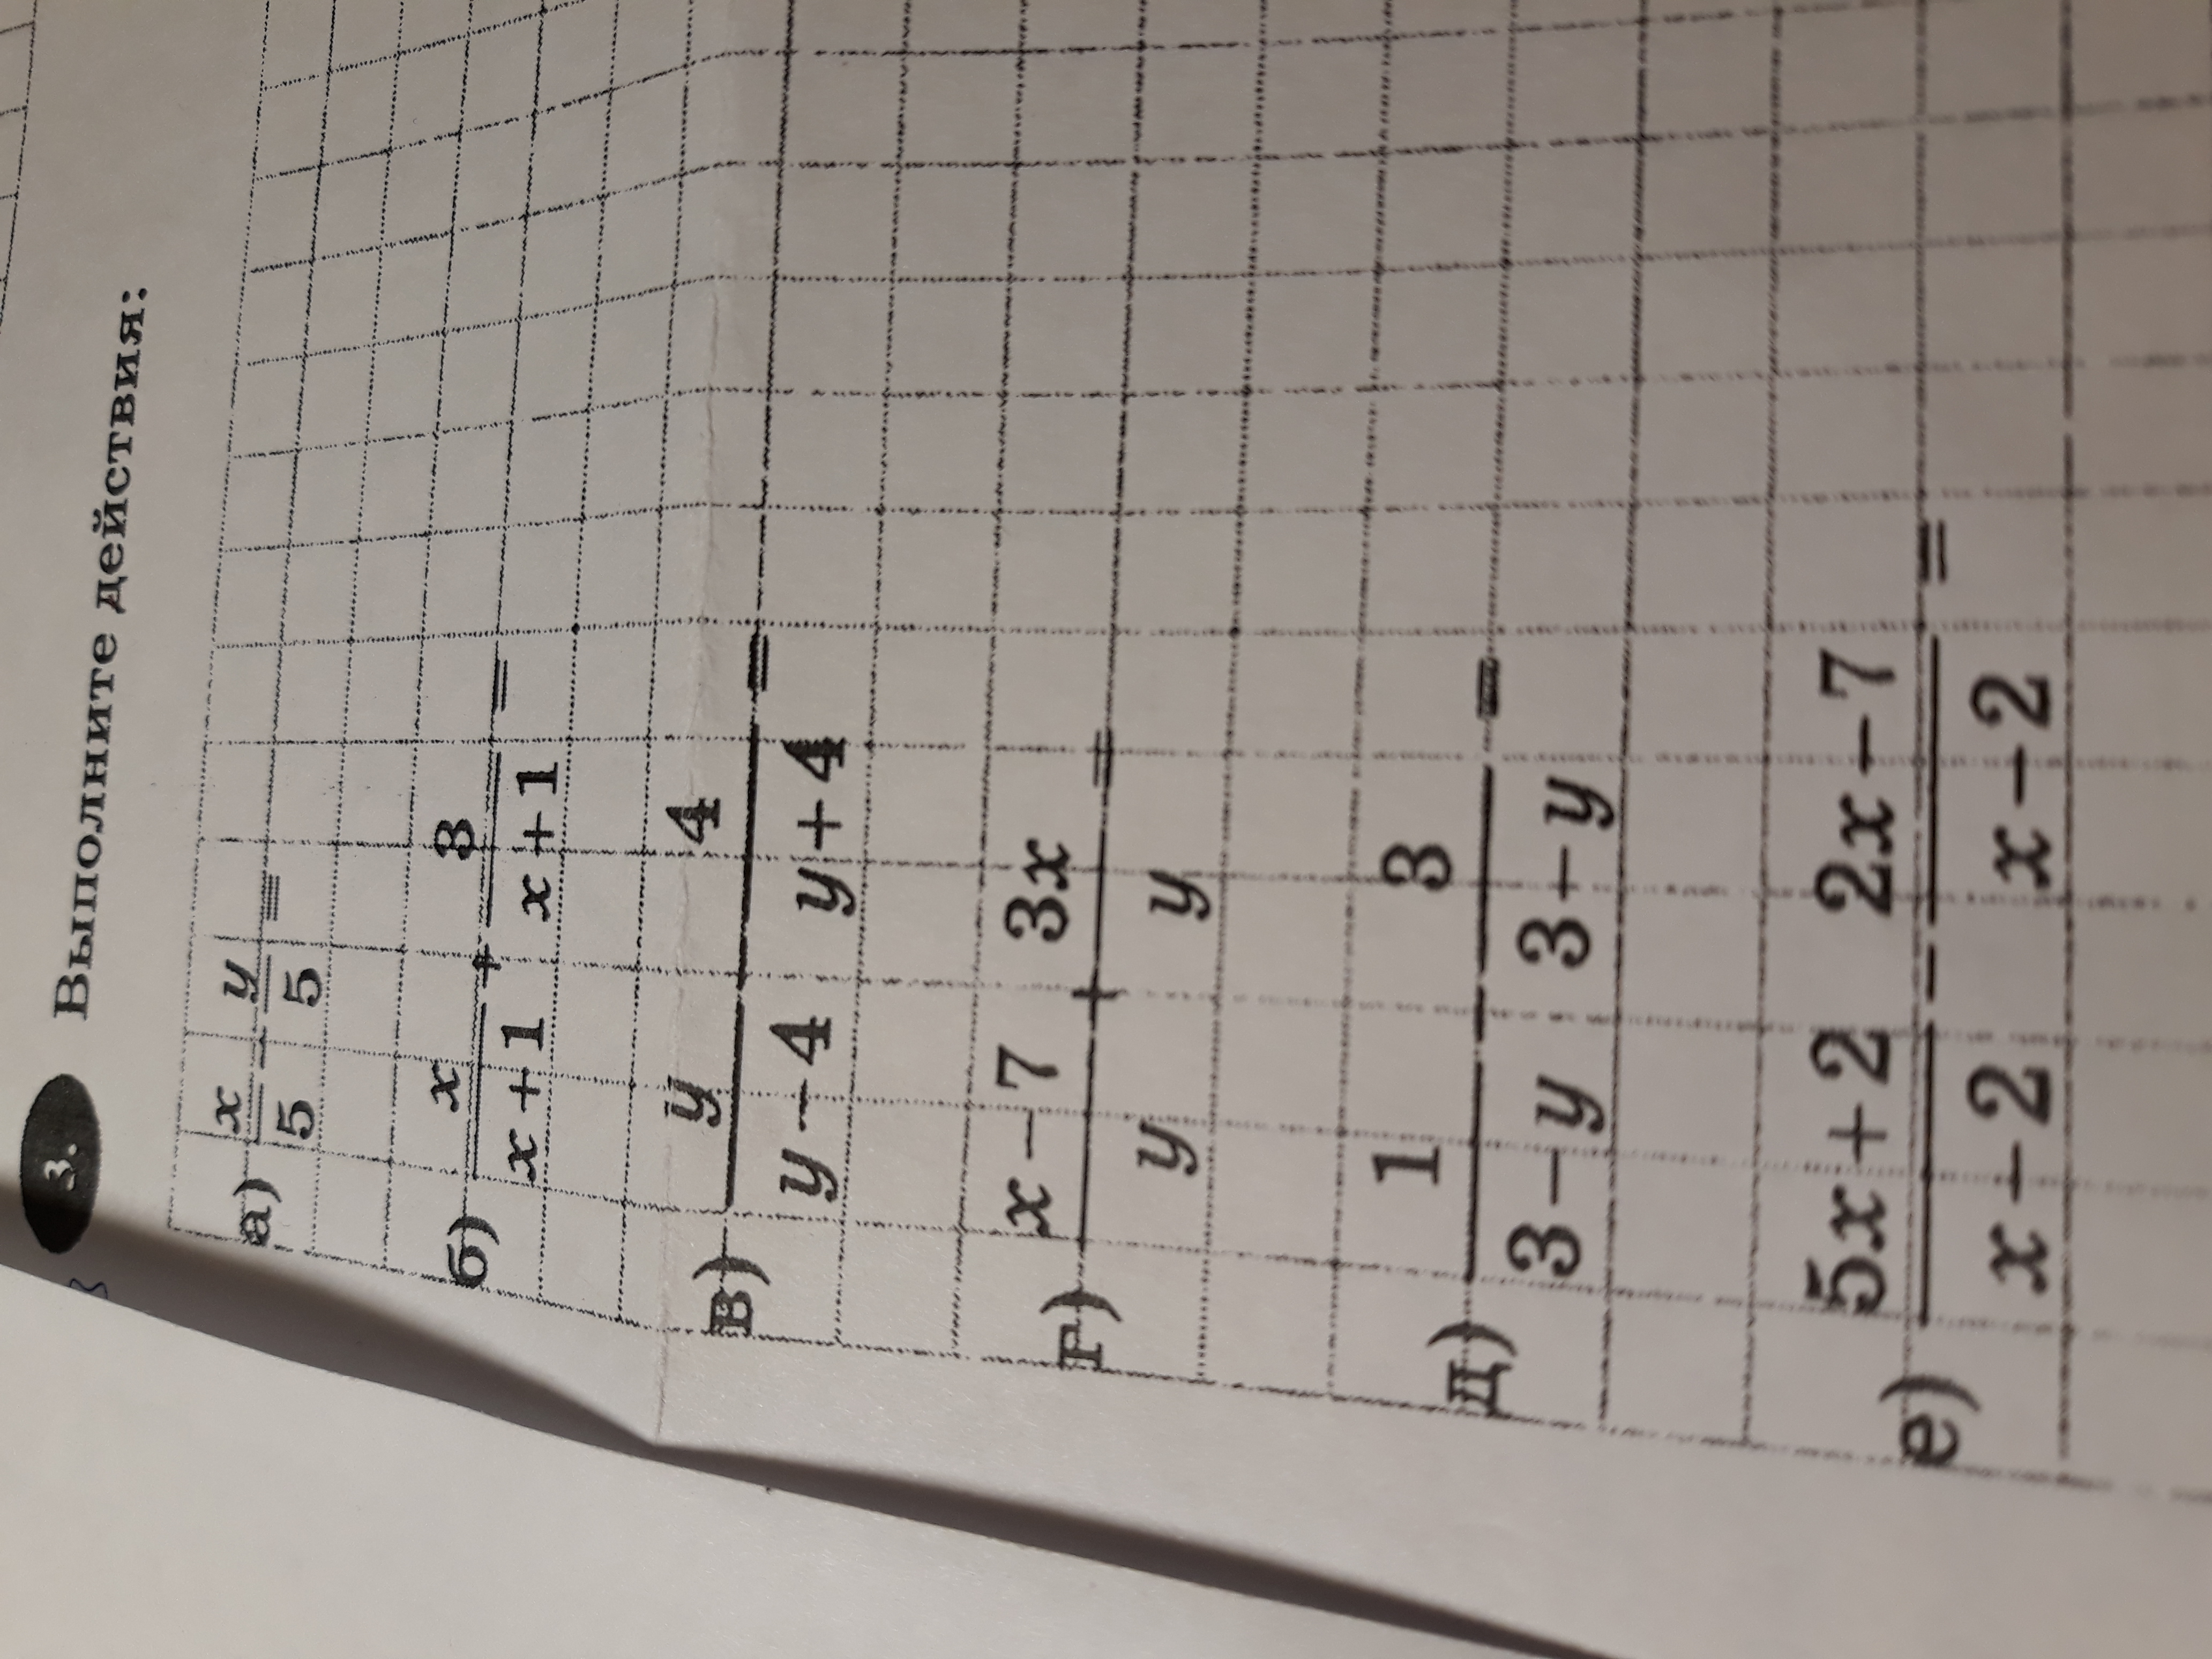 3. Выполните действия:
а) x/5 − y/5 =
б) x/(x + 1) + 3/(x + 1) =
в) y/(y − 4) − 4/(y + 4) =
г) (x − 7)/y + 3x/y =
д) 1/(3 − y) − 3/(3 − y) =
е) (5x + 2)/(x − 2) − (2x − 7)/(x − 2) =